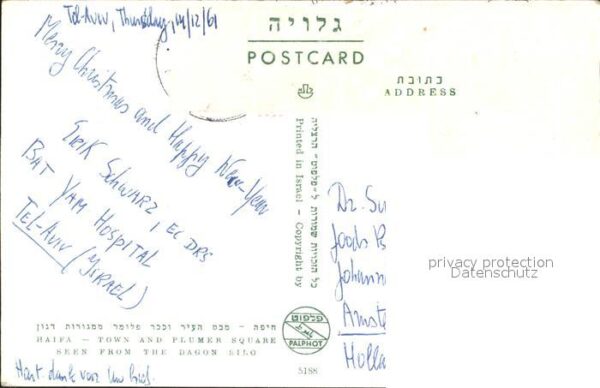 Tel-Aviv, Thursday, 14/12/61
Merry Christmas and Happy New-Year
Erik Schwarz, EC DRS
BAT YAM HOSPITAL
TEL-AVIV (YISRAEL)
חיפה - מבט העיר וככר פלומר ממגורות דגון
HAIFA — TOWN AND PLUMER SQUARE
SEEN FROM THE DAGON SILO
Hart. dank voor Uw brief.
גלויה
POSTCARD
כתובת
ADDRESS
כל הזכויות שמורות ל"פלפוט" הרצליה
Printed in Israel - Copyright by
פלפוט
PALPHOT
5188
Dr. Su
Joods
Johann
Amste
Holla
privacy protection
Datenschutz